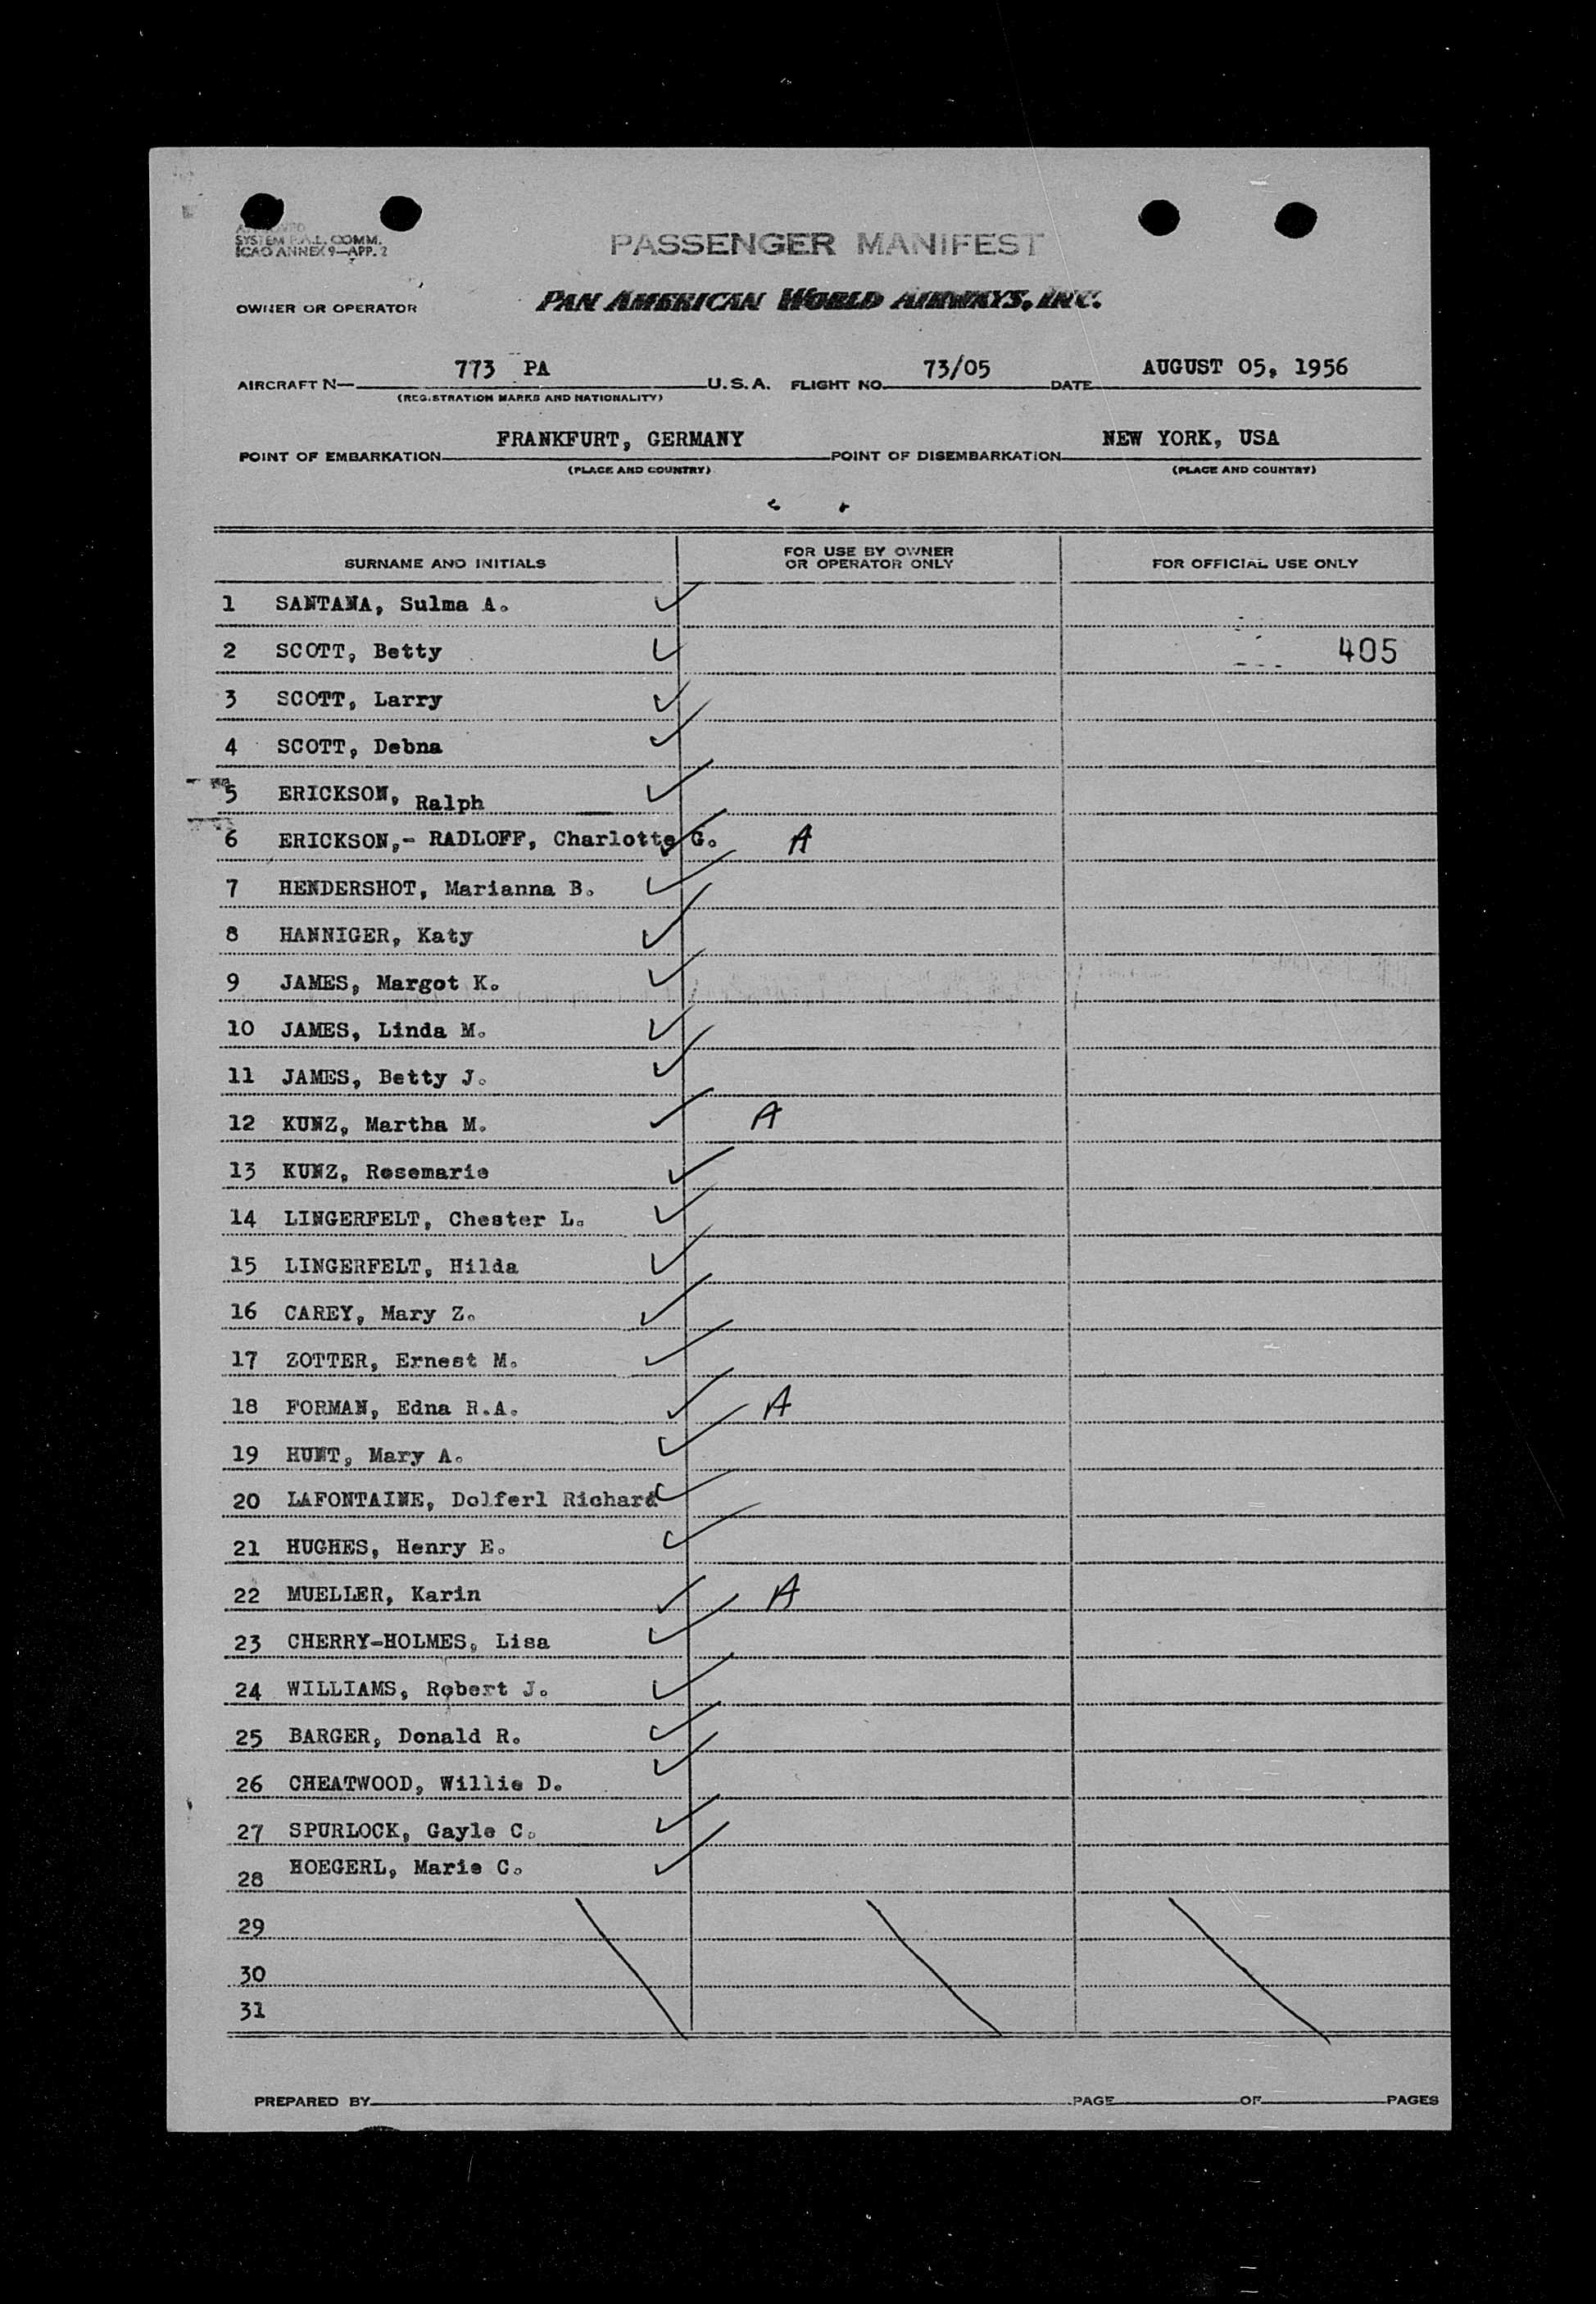 SYSTEM COMM.
ICAO ANNEX 9—APP. 2
PASSENGER MANIFEST
OWNER OR OPERATOR PAN AMERICAN WORLD AIRWAYS, INC.
AIRCRAFT N— 773 PA U.S.A. FLIGHT NO. 73/05 DATE AUGUST 05, 1956
(REGISTRATION MARKS AND NATIONALITY)
POINT OF EMBARKATION FRANKFURT, GERMANY POINT OF DISEMBARKATION NEW YORK, USA
(PLACE AND COUNTRY) (PLACE AND COUNTRY)
SURNAME AND INITIALS FOR USE BY OWNER OR OPERATOR ONLY FOR OFFICIAL USE ONLY
1 SANTANA, Sulma A.
2 SCOTT, Betty 405
3 SCOTT, Larry
4 SCOTT, Debna
5 ERICKSON, Ralph
6 ERICKSON,- RADLOFF, Charlotte G. A
7 HENDERSHOT, Marianna B.
8 HANNIGER, Katy
9 JAMES, Margot K.
10 JAMES, Linda M.
11 JAMES, Betty J.
12 KUNZ, Martha M. A
13 KUNZ, Rosemarie
14 LINGERFELT, Chester L.
15 LINGERFELT, Hilda
16 CAREY, Mary Z.
17 ZOTTER, Ernest M.
18 FORMAN, Edna R.A. A
19 HUNT, Mary A.
20 LAFONTAINE, Dolferl Richard
21 HUGHES, Henry E.
22 MUELLER, Karin A
23 CHERRY-HOLMES, Lisa
24 WILLIAMS, Robert J.
25 BARGER, Donald R.
26 CHEATWOOD, Willie D.
27 SPURLOCK, Gayle C.
28 HOEGERL, Marie C.
29
30
31
PREPARED BY PAGE OF PAGES